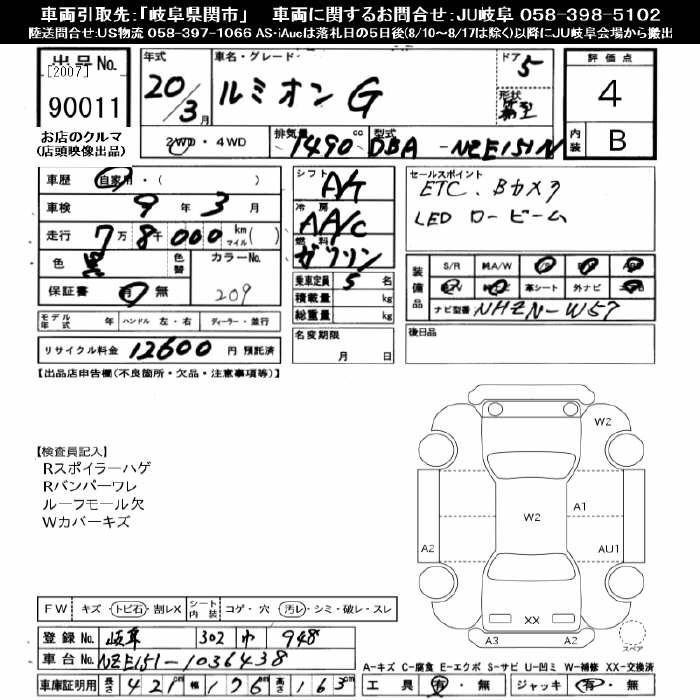 車両引取先:「岐阜県関市」　車両に関するお問合せ:JU岐阜 058-398-5102
陸送問合せ:US物流 058-397-1066 AS・iAucは落札日の5日後(8/10〜8/17は除く)以降にJU岐阜会場から搬出
出品No.
[2007]
90011
お店のクルマ
(店頭映像出品)
年式
20/3月
車名・グレード
ルミオン G
ドア
5
形状
箱型
2WD・4WD
排気量
1490cc
型式
DBA-NZE151N
評価点
4
内装
B
車歴 自家用・( )
車検 9年3月
走行 7万8千000 km マイル( )
色 黒
色替
カラーNo.
209
保証書 有 無
モデル年式 年 ハンドル 左・右 ディーラー・並行
リサイクル料金 12600 円 預託済
シフト
A/T
冷房
AA/C
燃料
ガソリン
乗車定員 5 名
積載量 kg
総重量 kg
名変期限
月 日
セールスポイント
ETC、Bカメラ
LED ロービーム
装備品
S/R
W/A/W
革シート
外ナビ
ナビ型番 NHZN-W57
後日品
【出品店申告欄(不良箇所・欠品・注意事項等)】
【検査員記入】
Rスポイラーハゲ
Rバンパーワレ
ルーフモール欠
Wカバーキズ
W2
W2
A1
A2
AU1
XX
A3
A2
スペア
FW キズ・トビ石・割レX
シート内装 コゲ・穴・汚レ・シミ・破レ・スレ
登録No. 岐阜 302 948
車台No. NZE151-1036438
車庫証明用 長さ 421cm 幅 176cm 高さ 163cm
A-キズ C-腐食 E-エクボ S-サビ U-凹ミ W-補修 XX-交換済
工具 有・無 ジャッキ 有・無